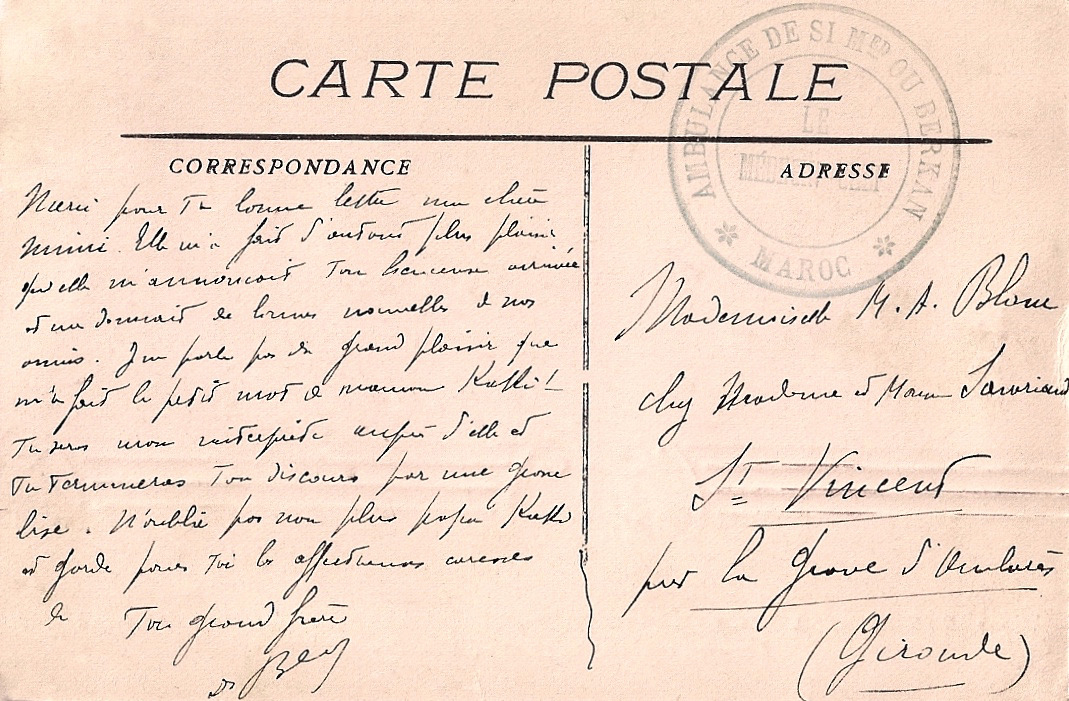 CARTE POSTALE
AMBULANCE DE SI MED OU BERKAN
LE
MÉDECIN CHEF
* MAROC *
CORRESPONDANCE
Merci pour Ta bonne lettre ma chère
Mimi. Elle m'a fait d'autant plus plaisir
qu'elle m'annonçait Ton heureuse arrivée
et me donnait de bonnes nouvelles de nos
amis. J'ne parle pas du grand plaisir que
m'a fait le petit mot de maman Kakki!
Tu seras mon interprète auprès d'elle et
Tu Termineras Ton discours par une grosse
bise. N'oublie pas non plus papa Kakki
et garde pour Toi les affectueuses caresses
de Ton grand frère
Dr
ADRESSE
Mademoiselle M. A. Blanc
chez Madame et Monsieur
St Vincent
par la Grave d'Ambarès
(Gironde)